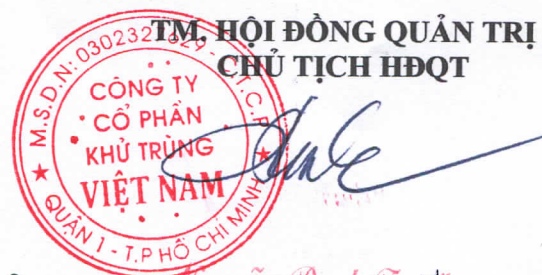 TM. HỘI ĐỒNG QUẢN TRỊ
CHỦ TỊCH HĐQT
M.S.D.N: C.T.C.P
CÔNG TY
CỔ PHẦN
KHỬ TRÙNG
VIỆT NAM
QUẬN 1 - T.P HỒ CHÍ MINH